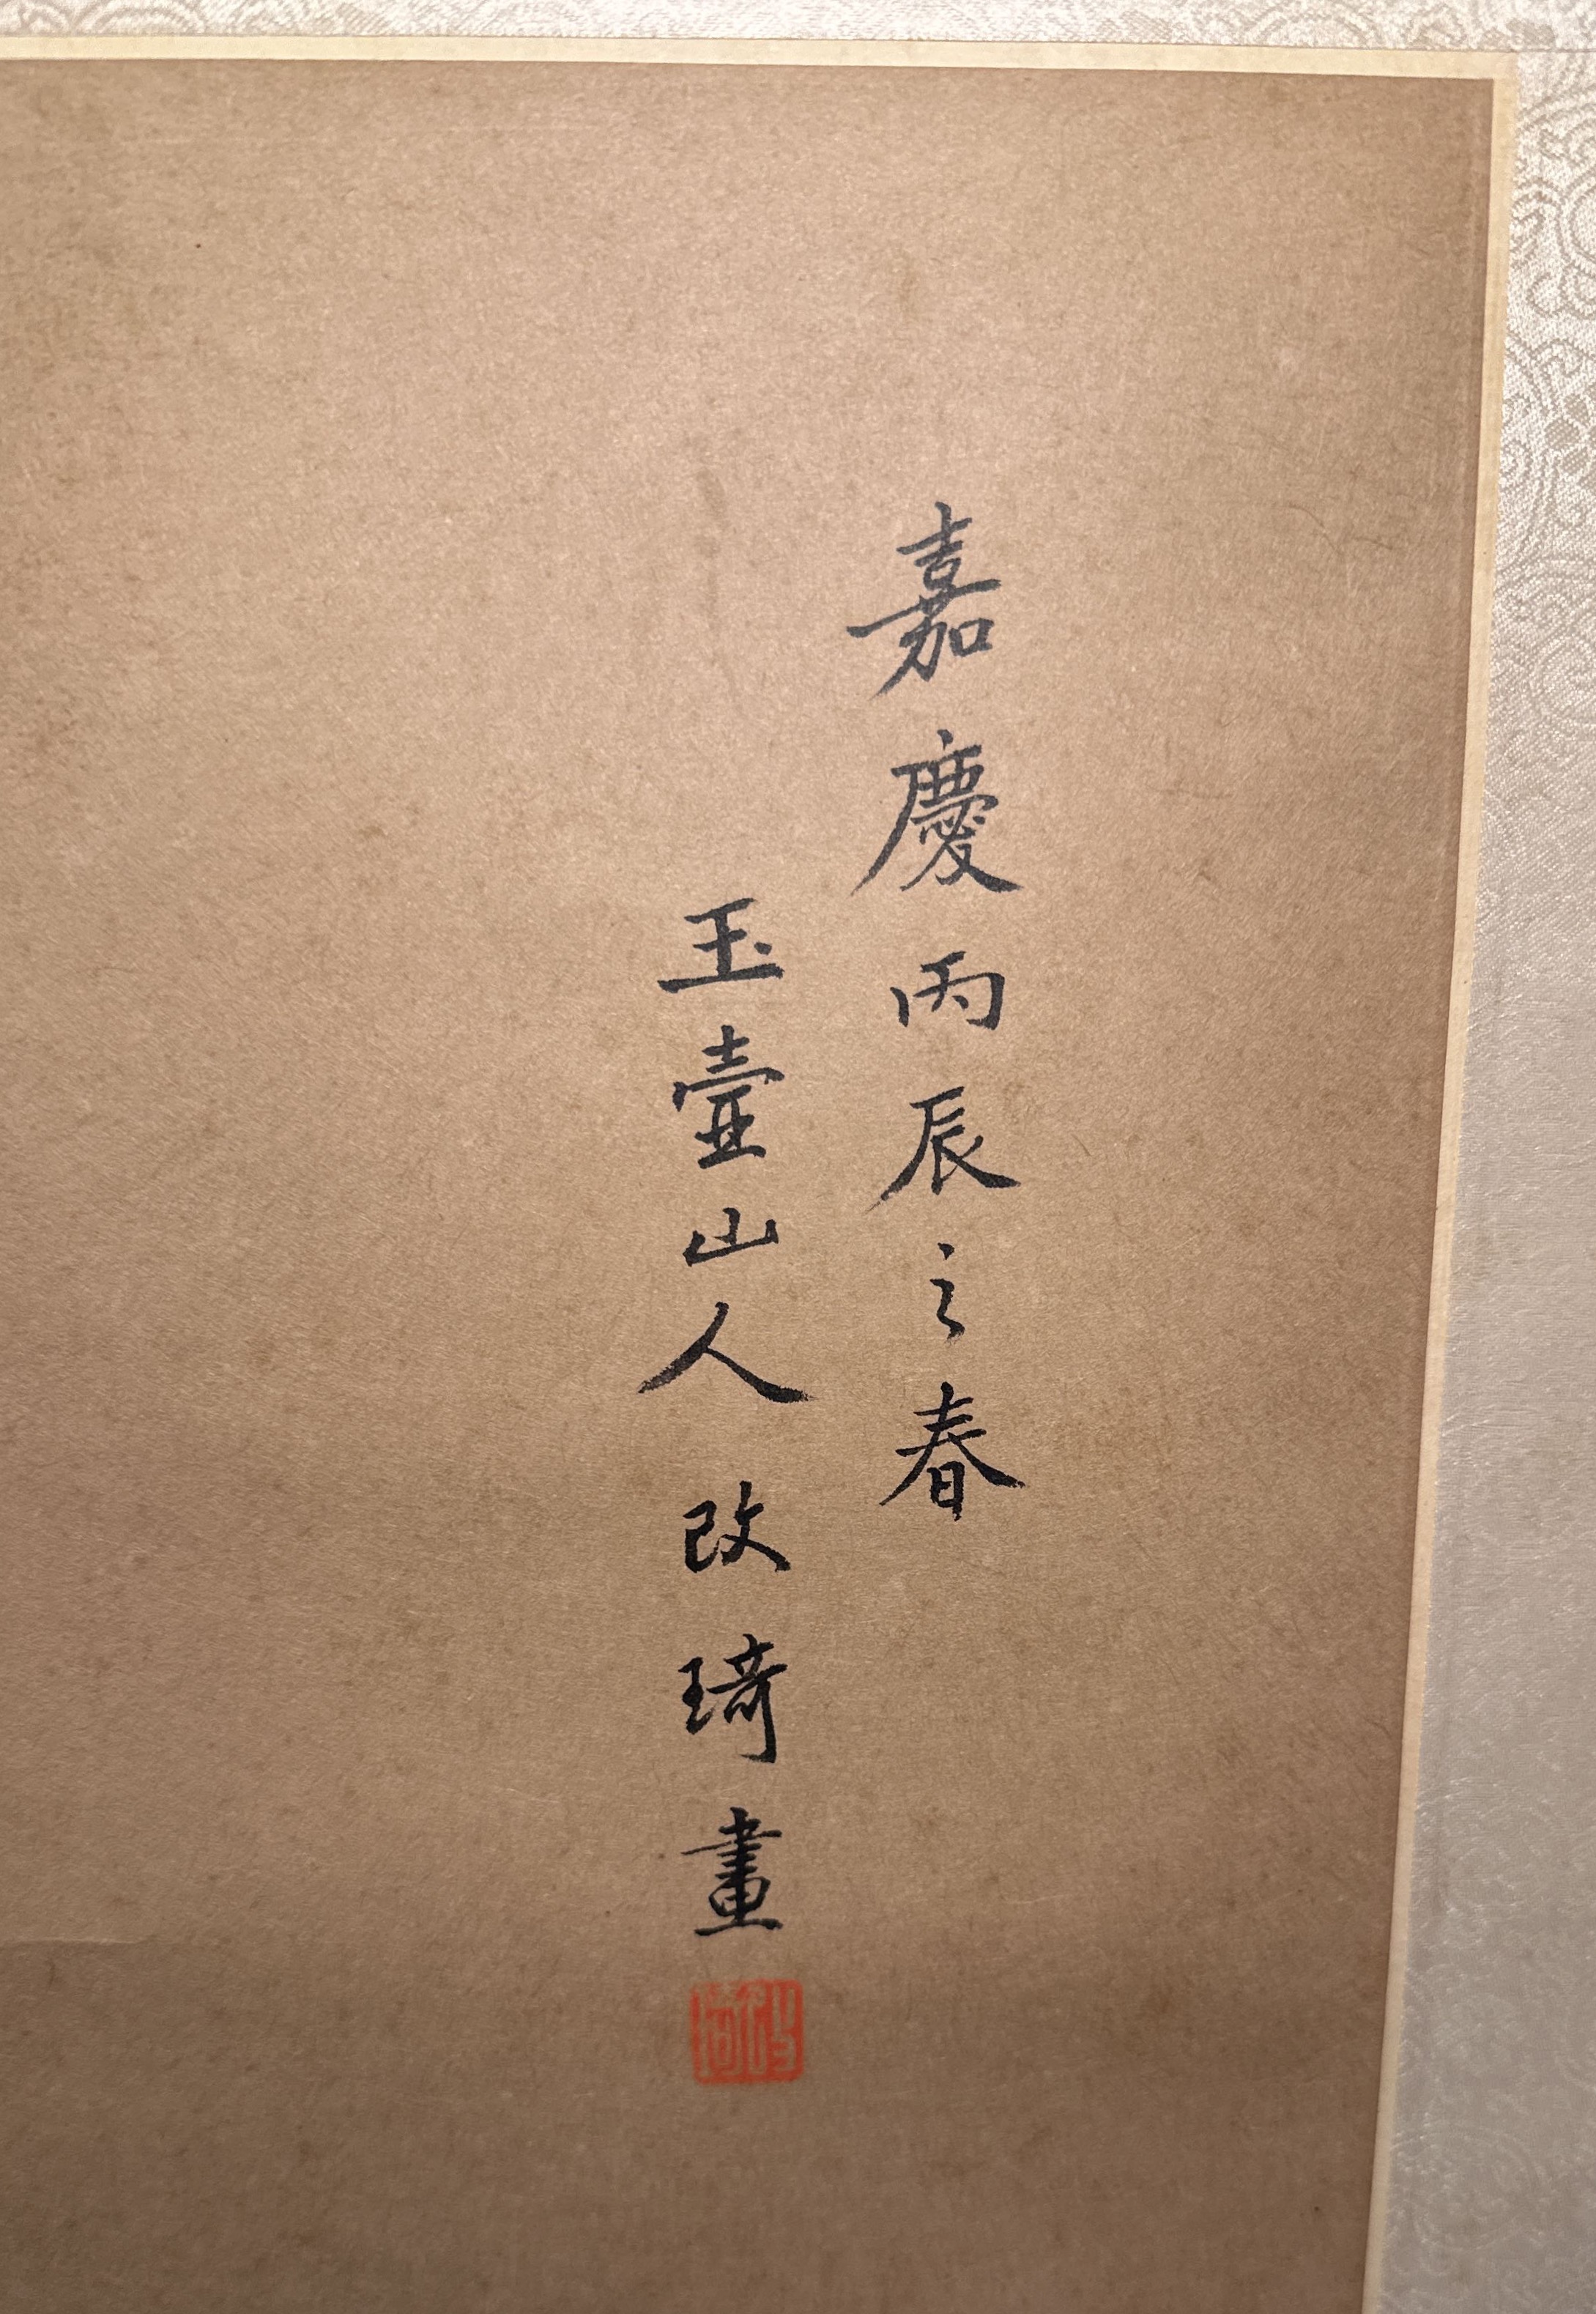 嘉慶丙辰之春
玉壺山人改琦畫